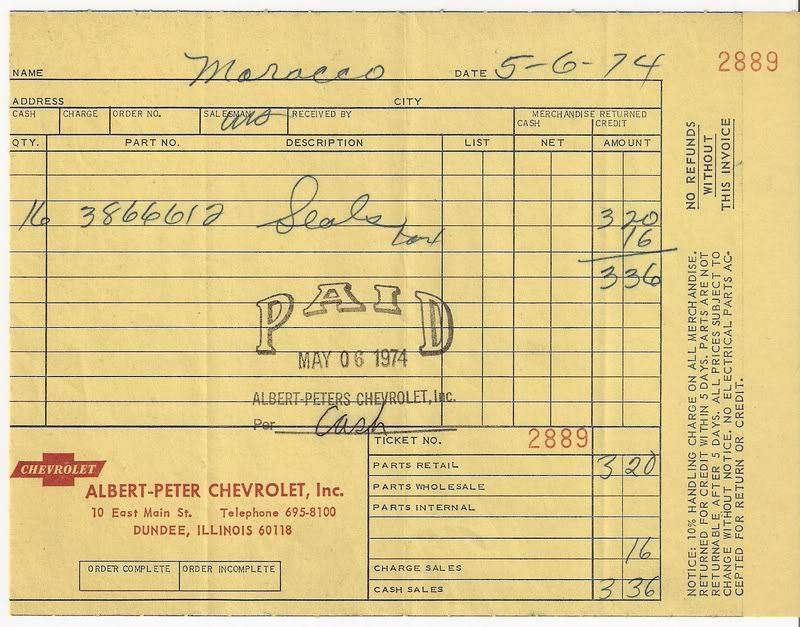 NAME Moracco DATE 5-6-74 2889
ADDRESS CITY
CASH CHARGE ORDER NO. SALESMAN RECEIVED BY MERCHANDISE RETURNED
CASH CREDIT
QTY. PART NO. DESCRIPTION LIST NET AMOUNT
16 3866612 Seals 3 20
tax 16
3 36
PAID
MAY 06 1974
ALBERT-PETERS CHEVROLET, Inc.
Per Cash
TICKET NO. 2889
PARTS RETAIL 3 20
PARTS WHOLESALE
PARTS INTERNAL
16
CHARGE SALES
CASH SALES 3 36
CHEVROLET
ALBERT-PETER CHEVROLET, Inc.
10 East Main St. Telephone 695-8100
DUNDEE, ILLINOIS 60118
ORDER COMPLETE ORDER INCOMPLETE
NO REFUNDS
WITHOUT
THIS INVOICE
NOTICE: 10% HANDLING CHARGE ON ALL MERCHANDISE.
RETURNED FOR CREDIT WITHIN 5 DAYS. PARTS ARE NOT
RETURNABLE AFTER 5 DAYS. ALL PRICES SUBJECT TO
CHANGE WITHOUT NOTICE. NO ELECTRICAL PARTS AC-
CEPTED FOR RETURN OR CREDIT.